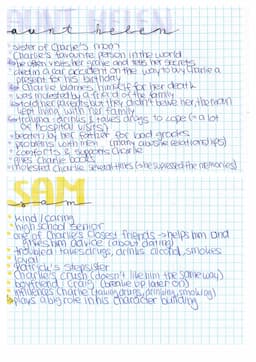 AUNT HELEN
aunt helen
• sister of Charlie's mom
• Charlie's favourite person in the world
• he often visits her grave and tells her secrets
• died in a car accident on the way to buy Charlie a
present for his birthday
↳ Charlie blames himself for her death
• was molested by a friend of the family
↳ told her parents but they didn't believe her, the man
kept living with her family
↳ trauma: drinks & takes drugs to cope (→ a lot
of hospital visits)
• beaten by her father for bad grades
• problems with men (many abusive relationships)
• comforts & supports Charlie
• gives Charlie books
• molested Charlie several times (→ he supressed the memories)
SAM
sam
• kind / caring
• high school senior
• one of Charlie's closest friends → helps him and
gives him advice (about dating)
• troubled: takes drugs, drinks alcohol, smokes
• loyal
• Patrick's stepsister
• Charlie's crush (doesn't like him the same way)
• boyfriend: Craig (broke up later on)
• influences Charlie (taking drugs, drinking, smoking)
• plays a big role in his character building